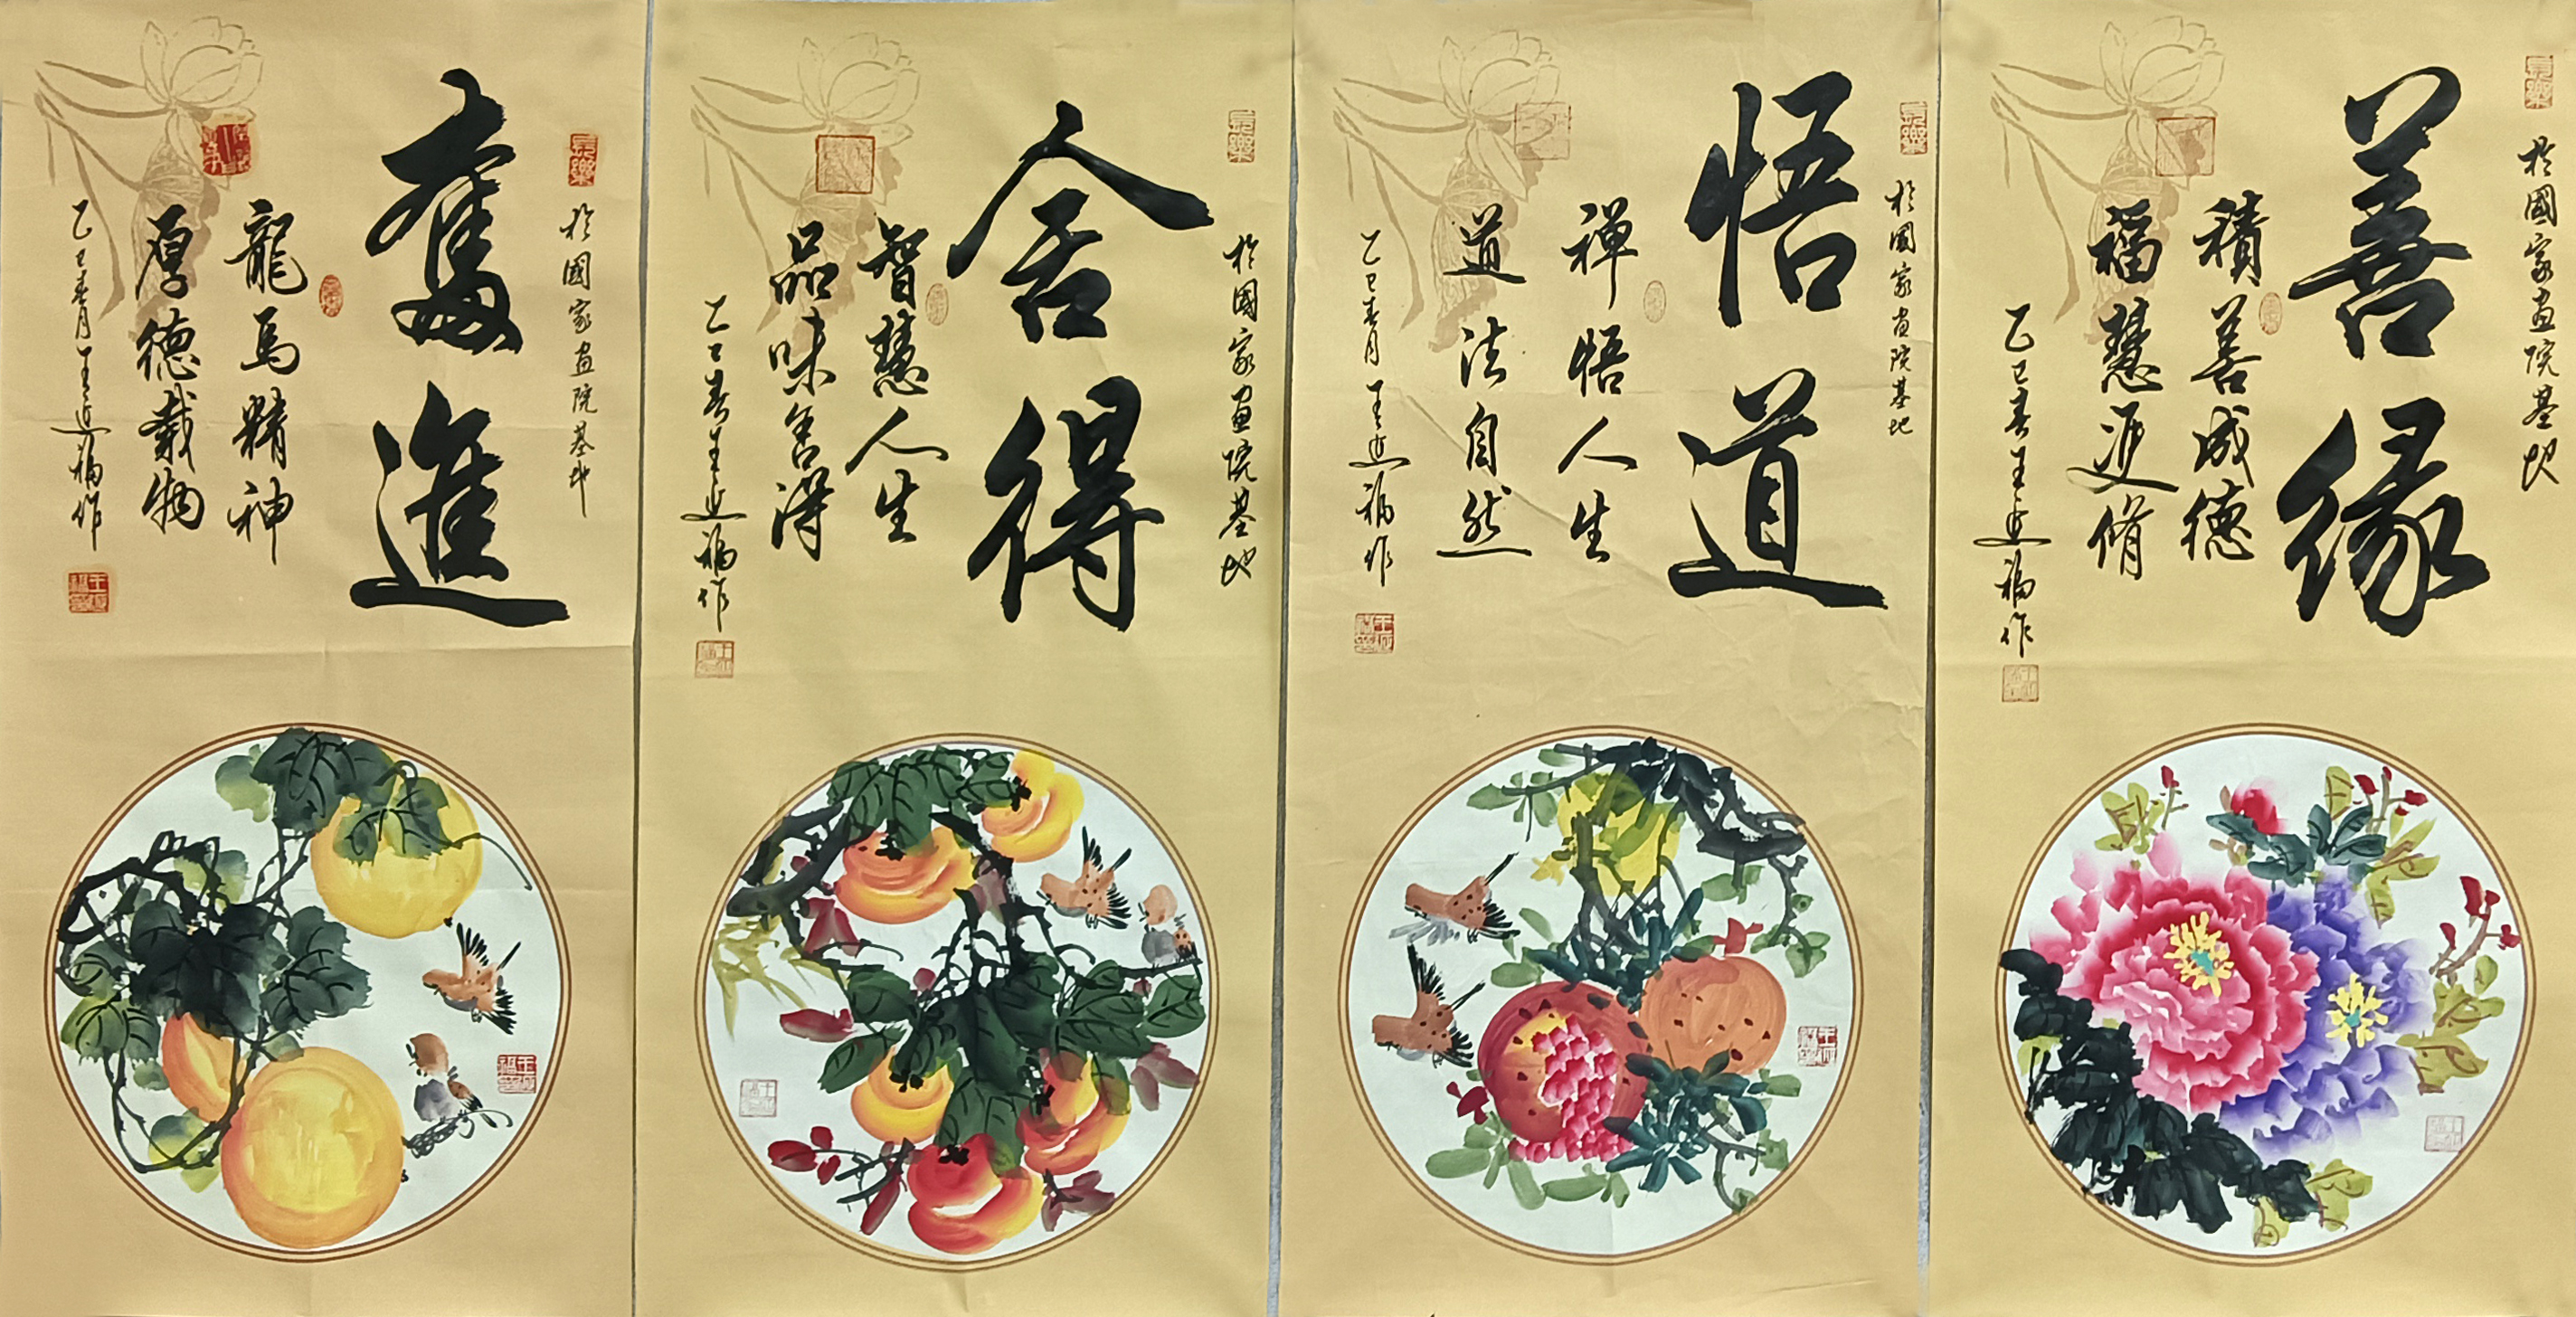 長樂
於國家画院基地
善缘
積善成德
福慧双修
乙巳春王近福作
長樂
於國家画院基地
悟道
禅悟人生
道法自然
乙巳春月王近福作
長樂
於國家画院基地
舍得
智慧人生
品味舍得
乙巳春王近福作
長樂
於國家画院基地
奮進
龍馬精神
厚德載物
乙巳春月王近福作